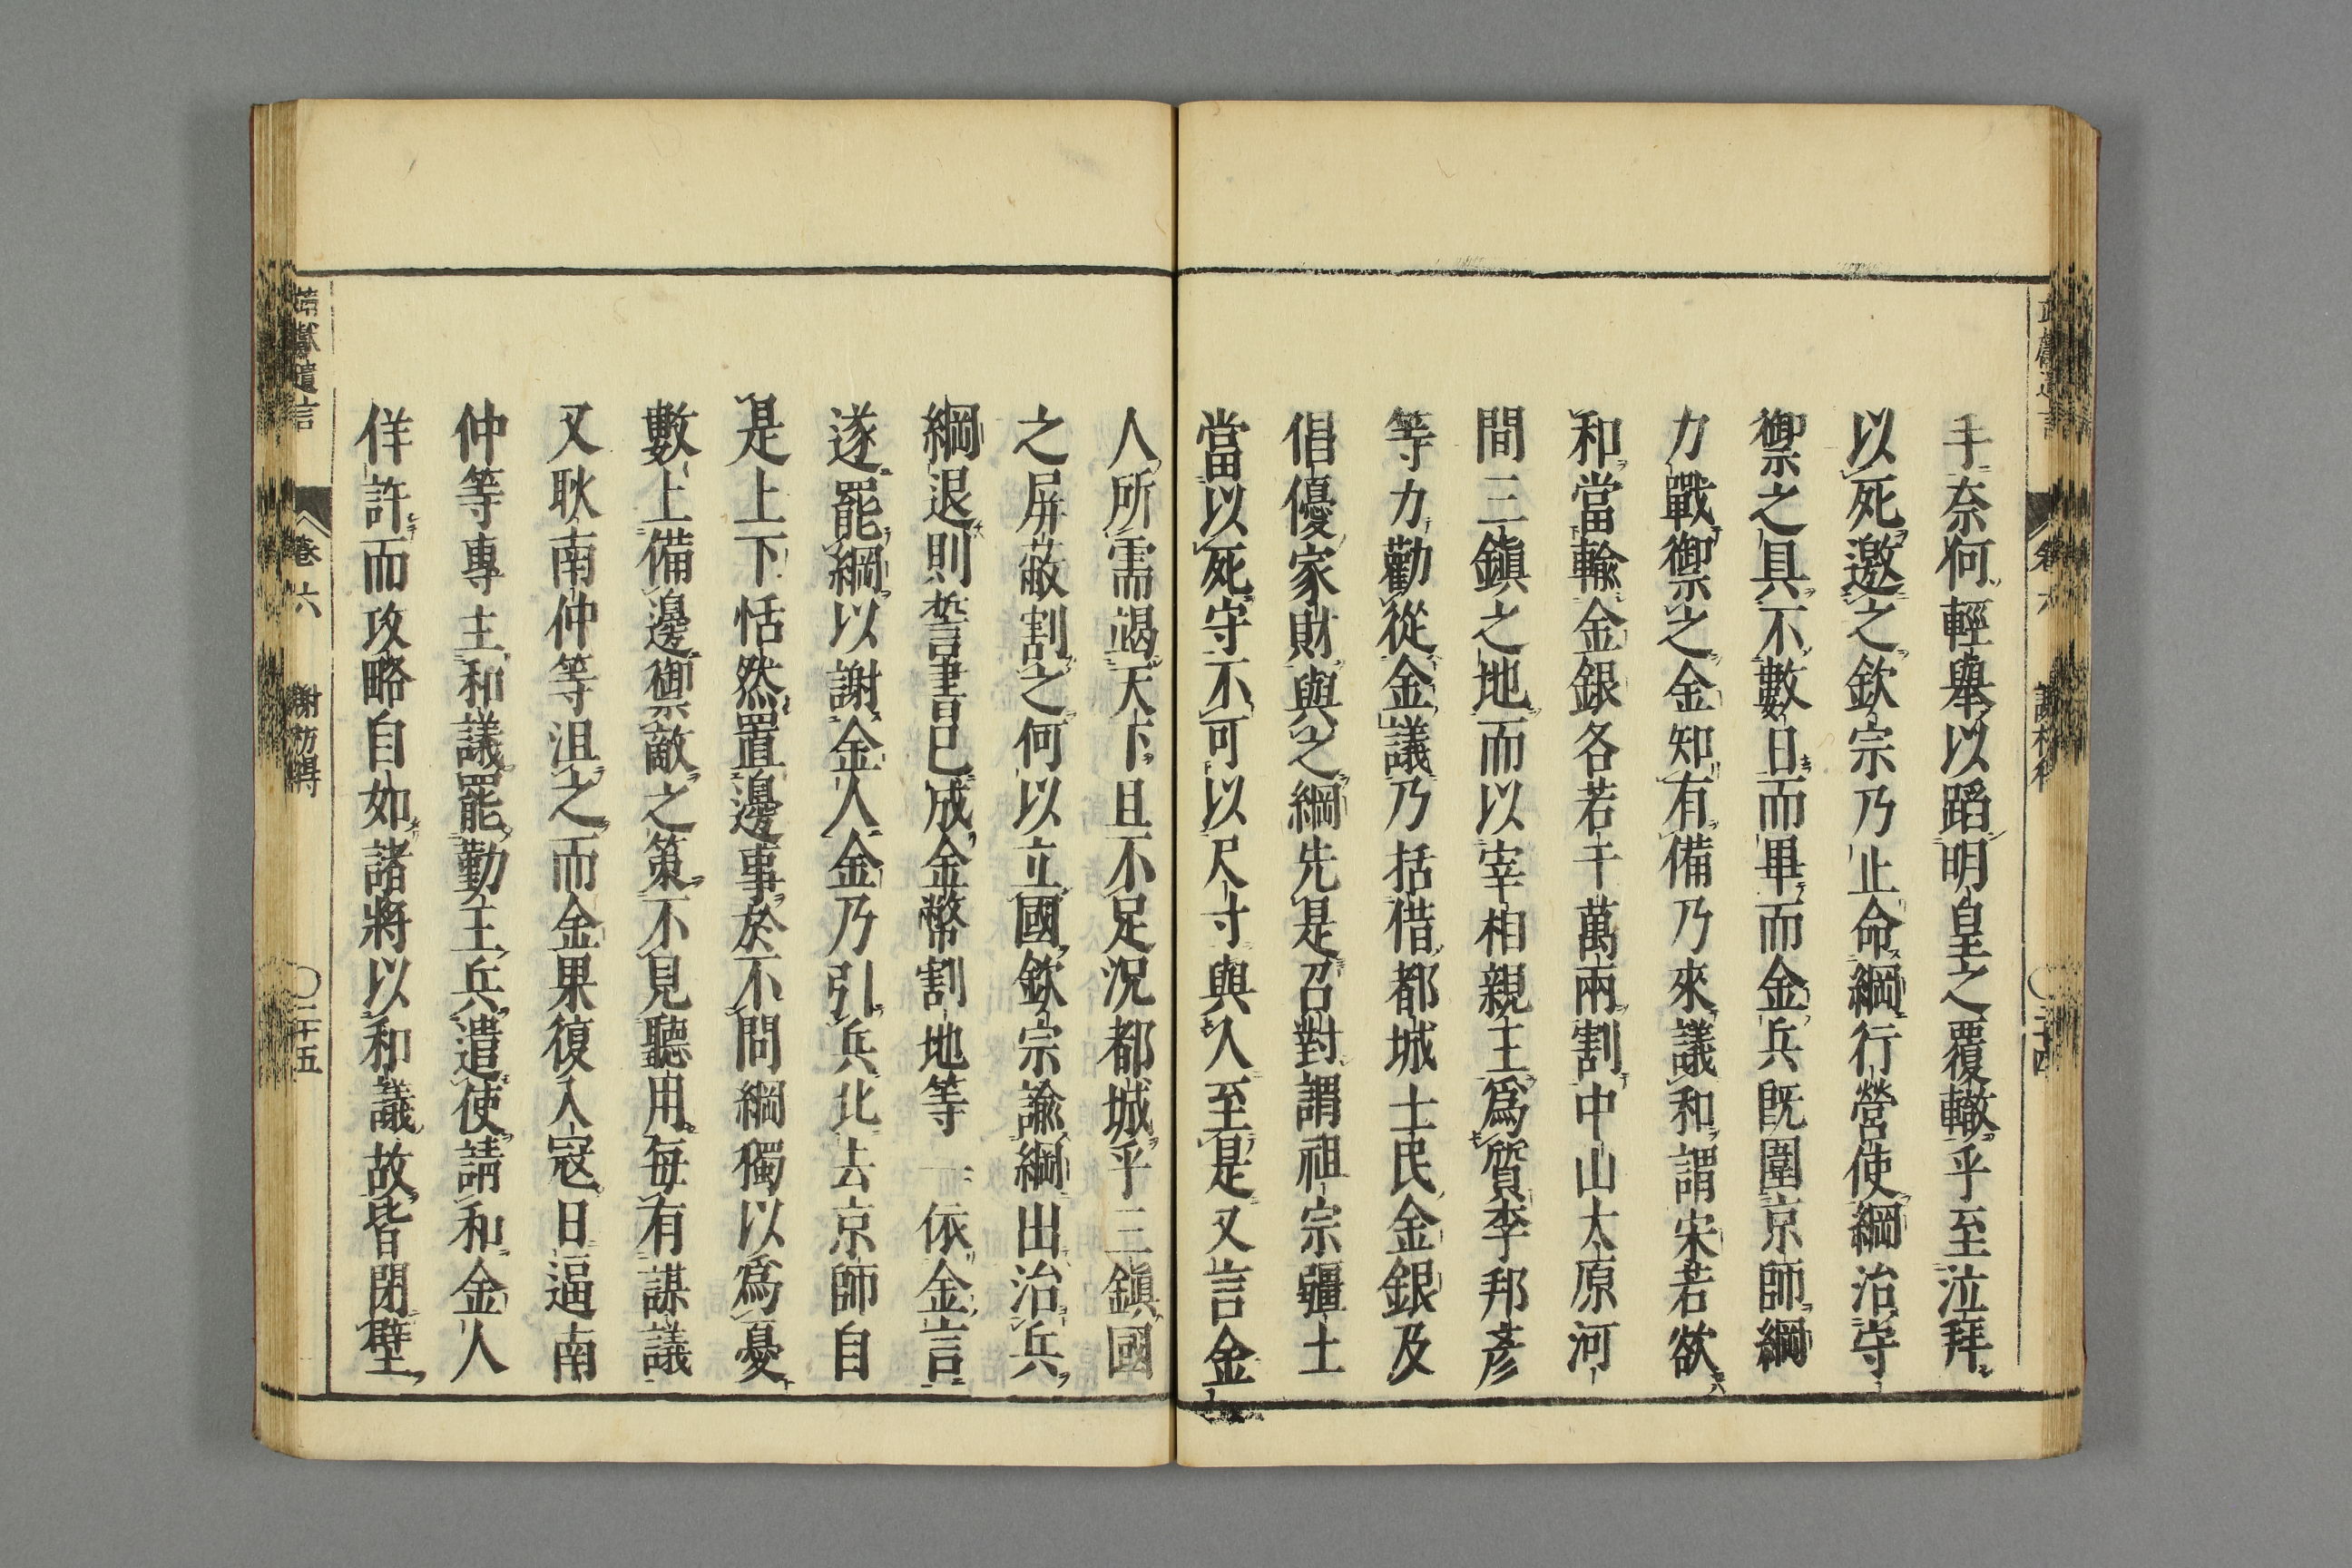 手奈何輕舉以蹈明皇之覆轍乎至泣拜
以死邀之欽宗乃止命綱行營使綱治守
禦之具不數日而畢而金兵既圍京師綱
力戰禦之金知有備乃來議和謂宋若欲
和當輸金銀各若干萬兩割中山太原河
間三鎮之地而以宰相親王爲質李邦彥
等力勸從金議乃括借都城士民金銀及
倡優家財與之綱先是召對謂祖宗疆土
當以死守不可以尺寸與人至是又言金
人所需竭天下且不足況都城乎三鎮國
之屏蔽割之何以立國欽宗諭綱出治兵
綱退則誓書已成金幣割地等一依金言
遂罷綱以謝金人金乃引兵北去京師自
是上下恬然置邊事於不問綱獨以爲憂
數上備邊禦敵之策不見聽用每有謀議
又耿南仲等沮之而金果復入寇日逼南
仲等專主和議罷勤王兵遣使請和金人
佯許而攻略自如諸將以和議故皆閉壁
靖獻遺言 卷六 謝枋得 二十五